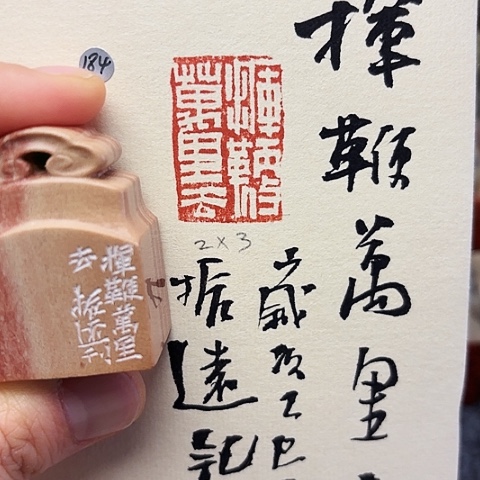 184
揮鞭
萬里去
2×3
揮鞭萬里
歲次乙巳
振遠記
揮鞭萬里
去 振遠刊